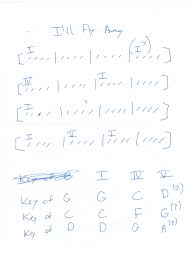 I'll Fly Away
[ I //// | //// | //// | (I7) //// ]
[ IV //// | //// | I //// | //// ]
[ I //// | //// | //// | //// ]
[ I //// | V //// | I //// | //// ]
Key of G I IV V
Key of G G C D(7)
Key of C C F G(7)
Key of D D G A(7)